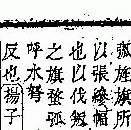 弧旌旗所
以張縿幅
也以伐
之旗蝥弧
呼水弩
反也揚子